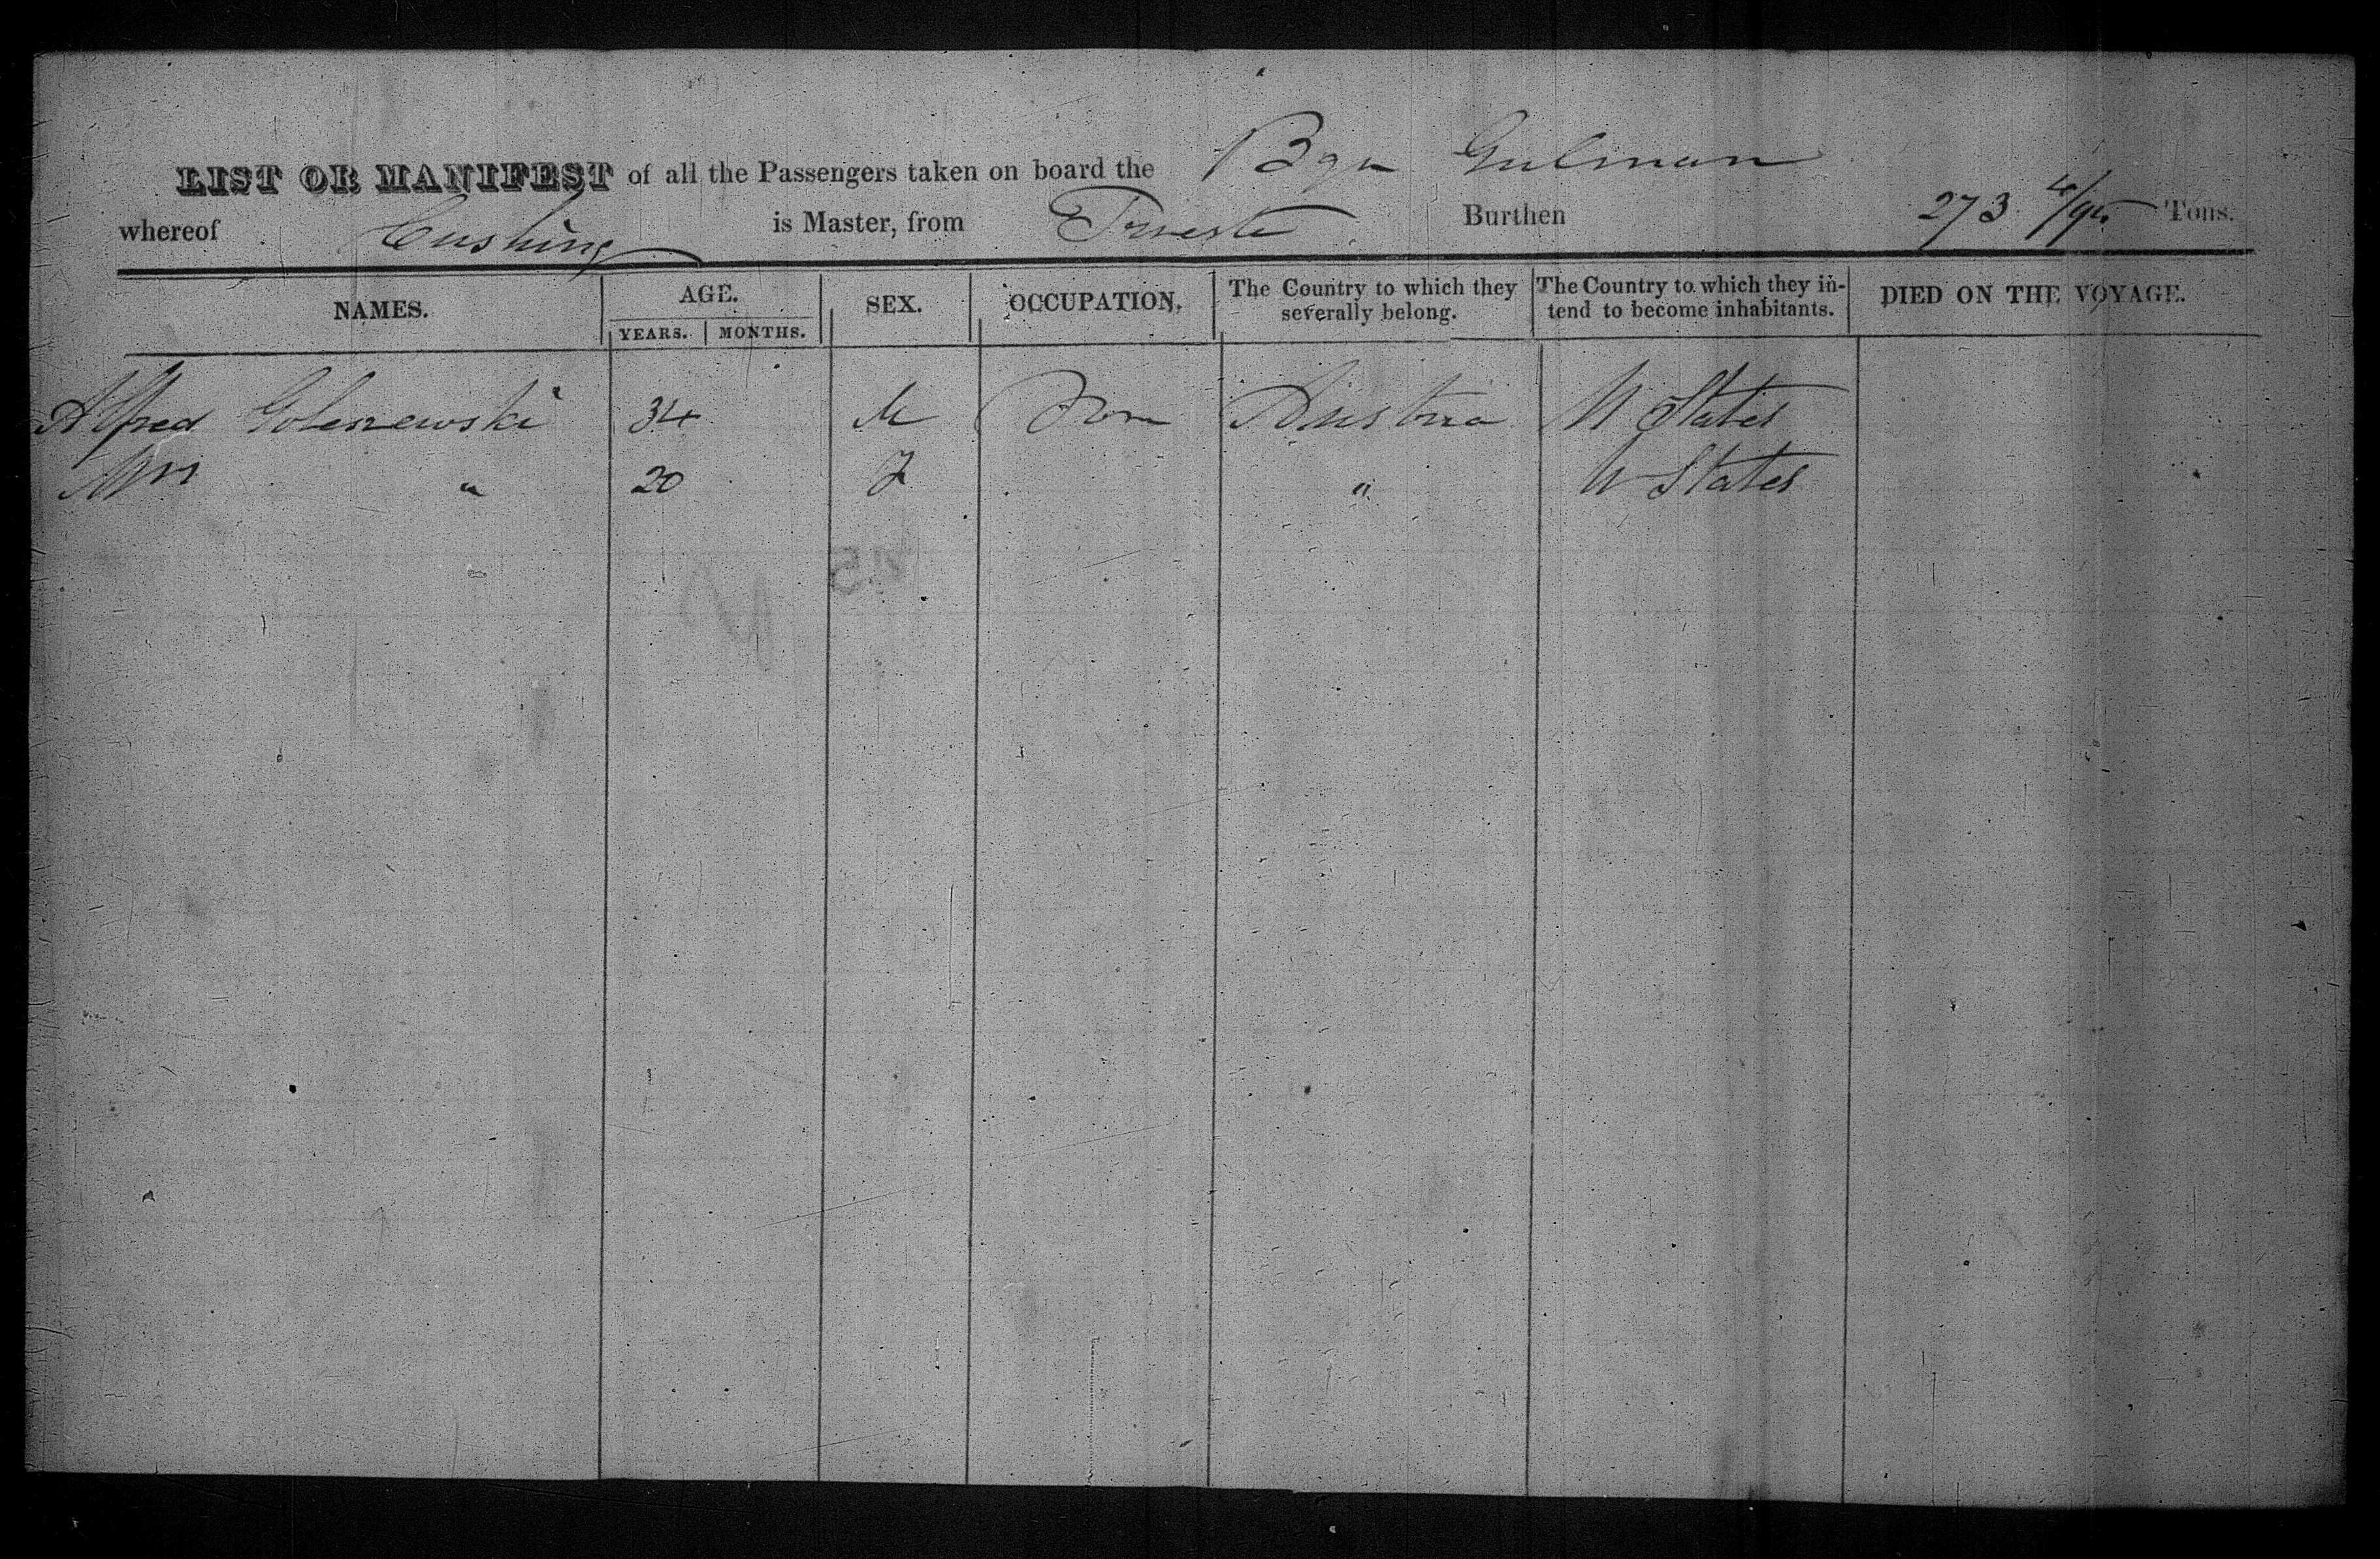 LIST OR MANIFEST of all the Passengers taken on board the Bqn Gulman
whereof Cushing is Master, from Trieste Burthen 273 4/95 Tons.
NAMES. AGE. SEX. OCCUPATION. The Country to which they severally belong. The Country to which they intend to become inhabitants. DIED ON THE VOYAGE.
YEARS. MONTHS.
Alfred Goleszewski 34 M Austria U States
Mrs " 20 F " U States